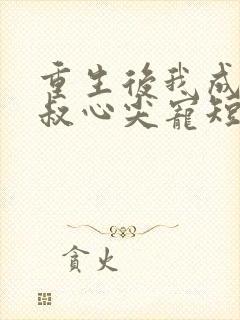 重生後我成
叔心尖寵短
貪火